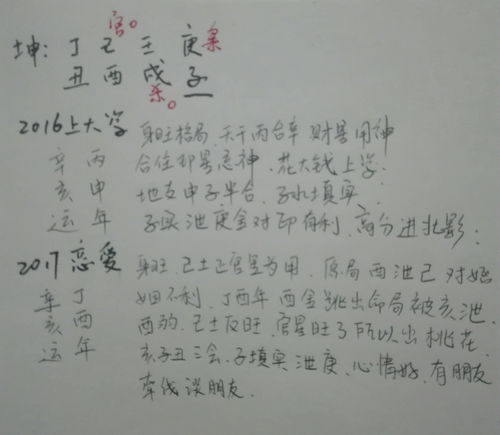 官。
坤: 丁 己 壬 庚 枭
丑 酉 戌 子
杀。
2016上大学 身旺格局 天干丙合辛 财星用神
辛 丙 合住却是忌神、花大钱上学.
亥 申 地支申子半合、子水填实、
运 年 子实泄庚金对印有利、高分进北影.
2017恋爱 身旺、己土正官星为用、原局酉泄己对婚
辛 丁 姻不利、丁酉年酉金跳出命局被亥泄.
亥 酉 酉弱、己土反旺、官星旺了所以出桃花.
运 年 亥子丑三会、子填实泄庚、心情好、有朋友
牵线谈朋友.